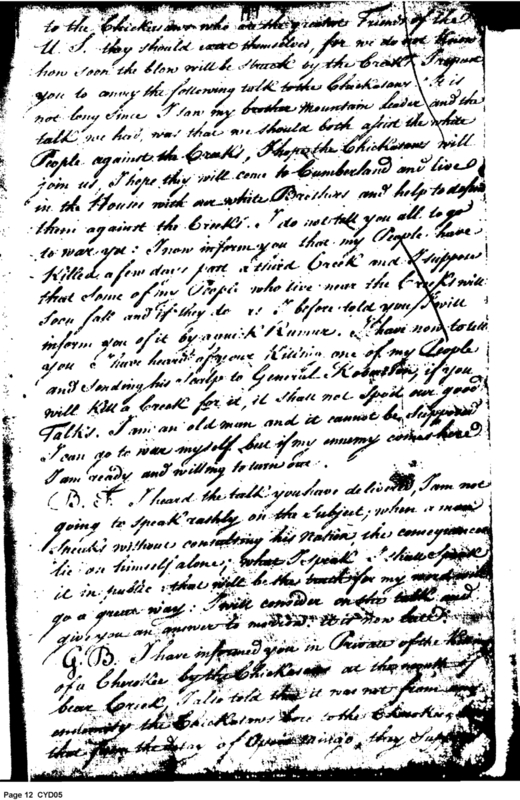 to the Chickasaws who are the greatest Friends of the
U. S. they should exert themselves, for we do not know
how soon the blow will be struck by the Creeks I request
you to convey the following talk to the Chickasaws. It is
not long since I saw my brother Mountain leader and the
talk we had, was that we should both assist the white
People against the Creeks, I hope the Chickasaws will
join us, I hope they will come to Cumberland and live
in the Houses with our white Brothers and help to defend
them against the Creeks. I do not tell you all to go
to war yet: I now inform you that my People have
Killed a few days past a third Creek and I suppose
that some of my People who live near the Creeks will
soon fall and if they do as I before told you I will
inform you of it by a quick Runner. I have now to tell
you I have heard of your Killing one of my People
and Sending his Scalp to General Robertson, if you
will kill a Creek for it, it shall not Spoil our good
Talks. I am an old man and it cannot be Supposed
I can go to war myself but if my ennemy comes here
I am ready and willing to turn out.
B. F. I heard the talk you have delivered, I am not
going to speak rashly on the Subject; when a man
Speaks without consulting his Nation the consequences
lie on himself alone; what I speak I shall Speak
it in public: that will be the truth for my word will
go a great way: I will consider on the talk and
give you an answer to morrow. it is now late.
G. B. I have informed you in Private of the
of a Cherokee by the Chickasaws at the mouth of
bear Creek, I also told that it was not from any
enmity the Chickasaws bore to the Cherokees
that from the delay of Opoia mingo, they
Page 12 CYD05